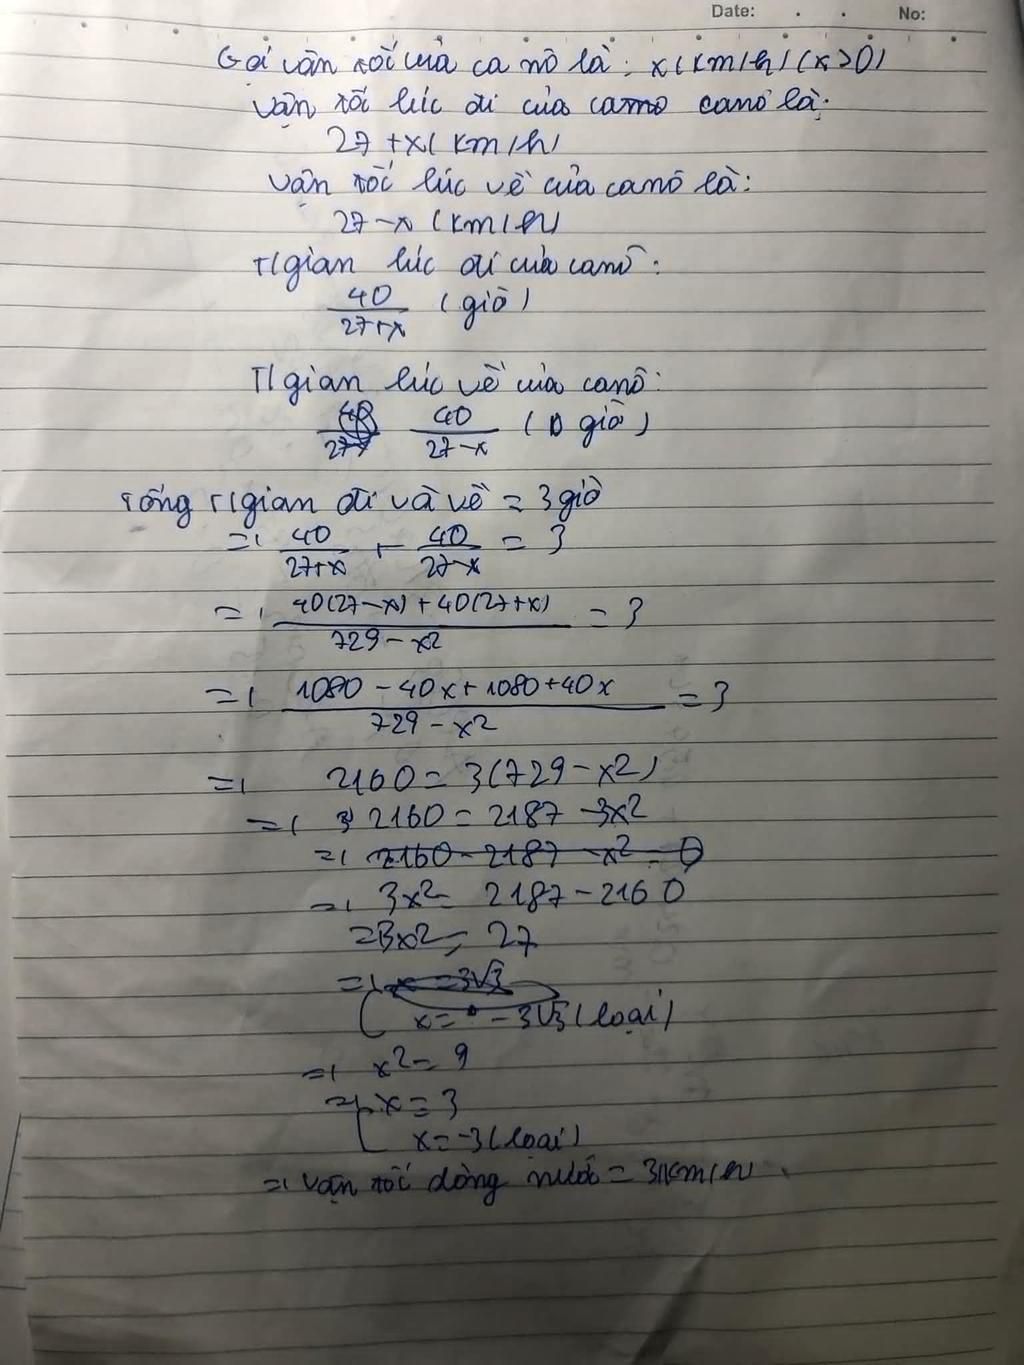 Date: . . No:
Gọi vận tốc của ca nô là: x (km/h) (x>0)
Vận tốc lúc đi của cano canô là:
27 + x (km/h)
Vận tốc lúc về của canô là:
27 - x (km/h)
T/gian lúc đi của canô:
40/(27+x) (giờ)
T/gian lúc về của canô:
40/(27-x) (giờ)
Tổng T/gian đi và về = 3 giờ
=> 40/(27+x) + 40/(27-x) = 3
=> (40(27-x) + 40(27+x))/(729 - x²) = 3
=> (1080 - 40x + 1080 + 40x)/(729 - x²) = 3
=> 2160 = 3(729 - x²)
=> 2160 = 2187 - 3x²
=> 2160 - 2187 - x² = 0
=> 3x² = 2187 - 2160
=> 3x² = 27
=> x = 3√3
x = -3√3 (loại)
=> x² = 9
=> x = 3
x = -3 (loại)
=> Vận tốc dòng nước = 3 km/h